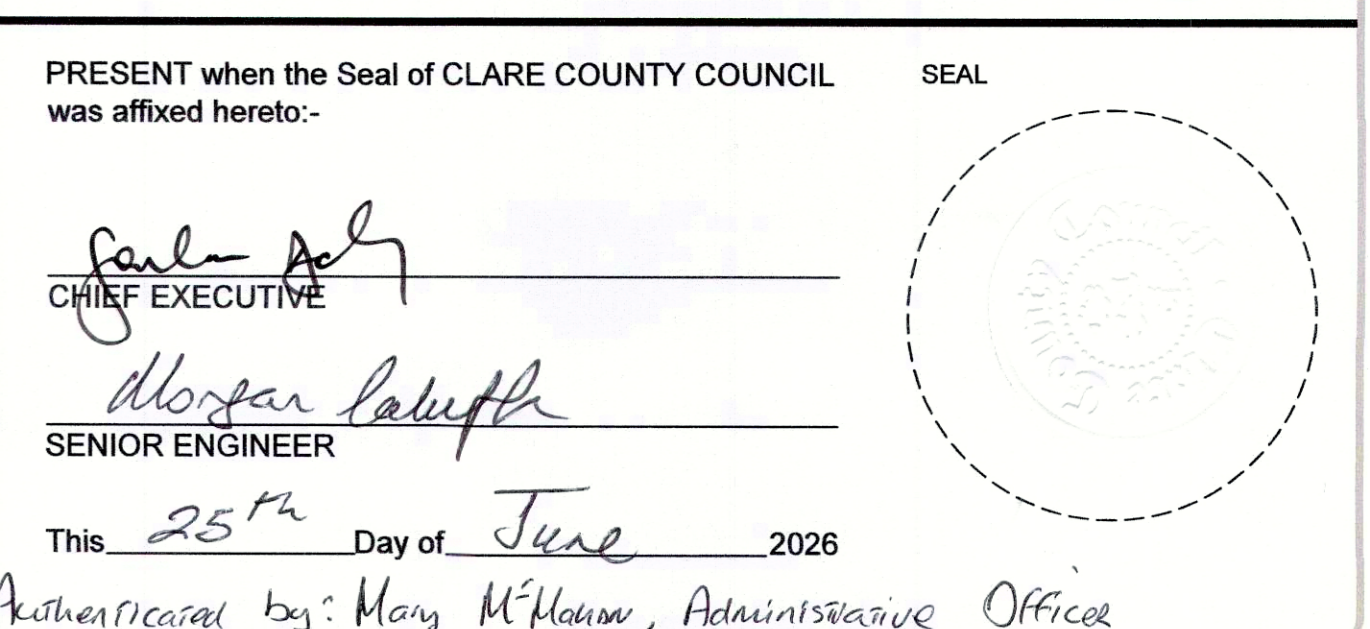 PRESENT when the Seal of CLARE COUNTY COUNCIL
was affixed hereto:-
SEAL
CHIEF EXECUTIVE
Morgan
SENIOR ENGINEER
This 25th Day of June 2026
Authenticated by: Mary McMahon, Administrative Officer